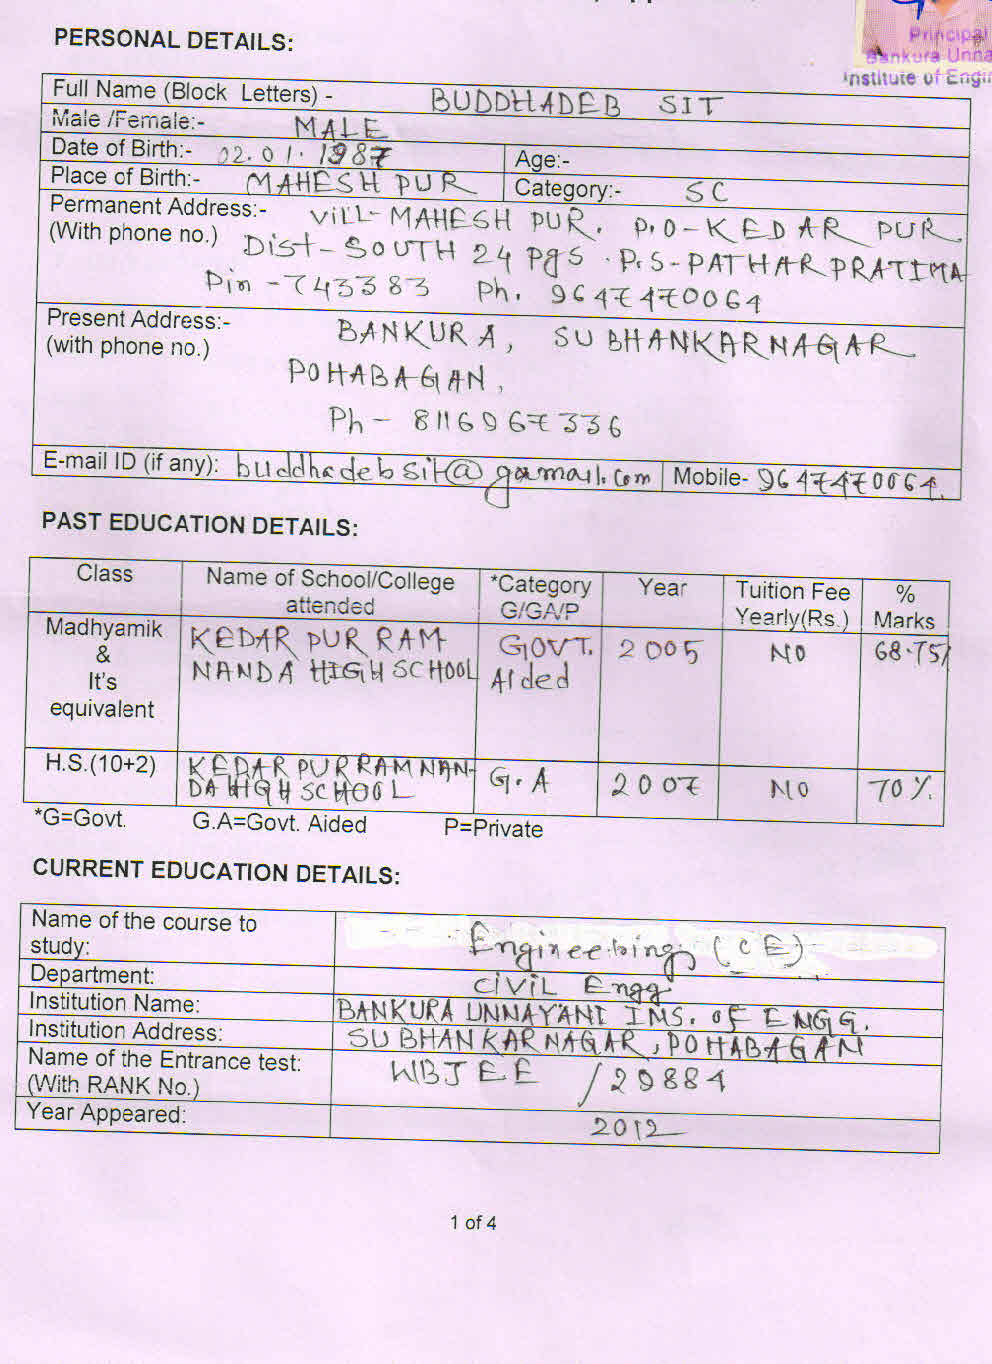 PERSONAL DETAILS:
Principal
Bankura Unna
Institute of Engin
Full Name (Block Letters) - BUDDHADEB SIT
Male /Female:- MALE
Date of Birth:- 02.01.1987 Age:-
Place of Birth:- MAHESH PUR Category:- SC
Permanent Address:- VILL-MAHESH PUR. P.O-KEDAR PUR
(With phone no.) Dist-SOUTH 24 pgs. P.S-PATHARPRATIMA
Pin-743383 Ph. 9647470064
Present Address:- BANKURA, SUBHANKARNAGAR
(with phone no.) POHABAGAN,
Ph- 8116967336
E-mail ID (if any): buddhadebsit@gamail.com Mobile- 9647470064.
PAST EDUCATION DETAILS:
Class Name of School/College attended *Category G/GA/P Year Tuition Fee Yearly(Rs.) % Marks
Madhyamik & It's equivalent KEDAR PUR RAM NANDA HIGH SCHOOL GOVT. AIded 2005 NO 68.75/
H.S.(10+2) KEDAR PUR RAM NAN-DA HIGH SCHOOL G.A 2007 NO 70%.
*G=Govt. G.A=Govt. Aided P=Private
CURRENT EDUCATION DETAILS:
Name of the course to study: Engineering (CE)
Department: CIVIL Engg
Institution Name: BANKURA UNNAYANI INS. OF ENGG.
Institution Address: SUBHANKARNAGAR, POHABAGAN
Name of the Entrance test: WBJEE /29884
(With RANK No.)
Year Appeared: 2012
1 of 4